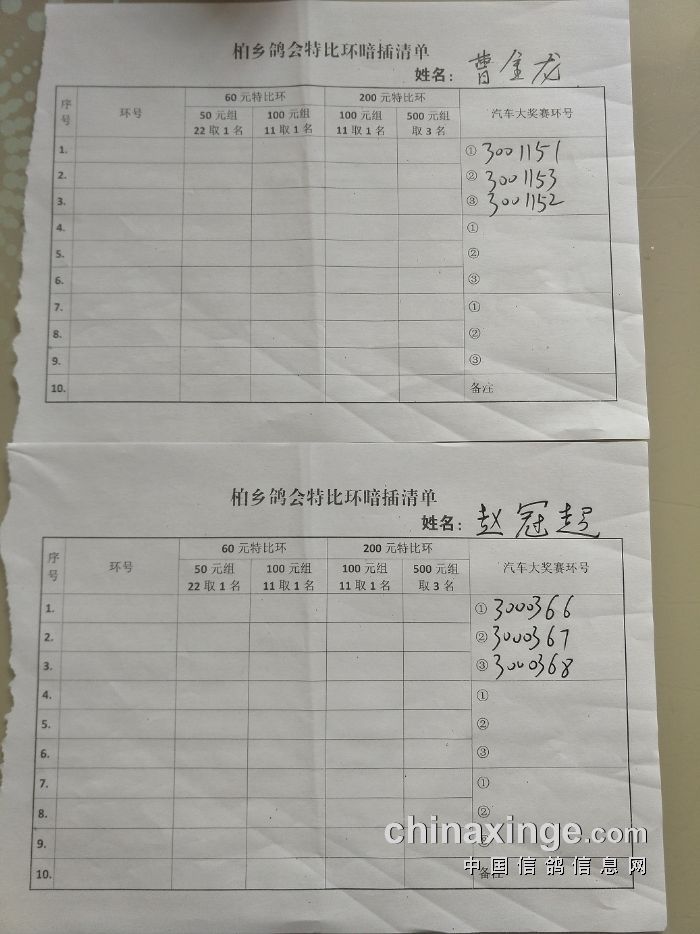 柏乡鸽会特比环暗插清单
姓名：曹金龙
序号 环号 60 元特比环 200 元特比环 汽车大奖赛环号
50 元组 100 元组 100 元组 500 元组
22 取 1 名 11 取 1 名 11 取 1 名 取 3 名
1. ① 3001151
2. ② 3001153
3. ③ 3001152
4. ①
5. ②
6. ③
7. ①
8. ②
9. ③
10. 备注
柏乡鸽会特比环暗插清单
姓名：赵冠起
序号 环号 60 元特比环 200 元特比环 汽车大奖赛环号
50 元组 100 元组 100 元组 500 元组
22 取 1 名 11 取 1 名 11 取 1 名 取 3 名
1. ① 3000366
2. ② 3000367
3. ③ 3000368
4. ①
5. ②
6. ③
7. ①
8. ②
9.
10. 备注
chinaxinge.com
中国信鸽信息网